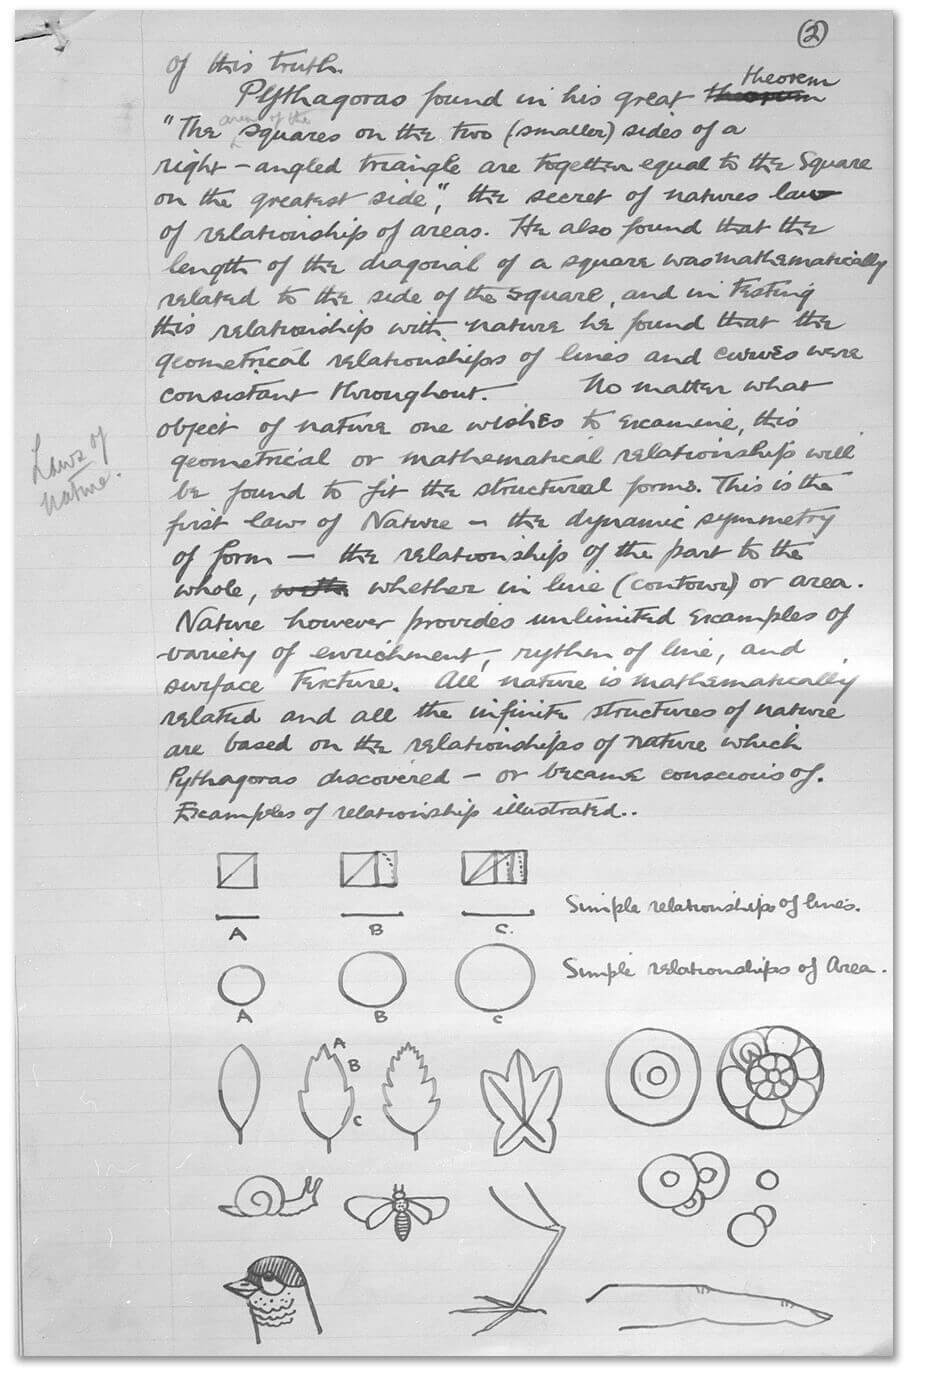 2
of this truth.
Pythagoras found in his great theorem
"The area of the squares on the two (smaller) sides of a
right-angled triangle are together equal to the Square
on the greatest side", the secret of natures law
of relationship of areas. He also found that the
length of the diagonal of a square was mathematically
related to the side of the square, and in testing
this relationship with nature he found that the
geometrical relationships of lines and curves were
consistant throughout. No matter what
object of nature one wishes to examine, this
geometrical or mathematical relationship will
be found to fit the structural forms. This is the
first law of Nature — the dynamic symmetry
of form — the relationship of the part to the
whole, whether in line (contour) or area.
Nature however provides unlimited examples of
variety of enrichment, rythm of line, and
surface texture. All nature is mathematically
related and all the infinite structures of nature
are based on the relationships of nature which
Pythagoras discovered — or became conscious of.
Examples of relationship illustrated..
Laws of
Nature.
Simple relationships of lines.
A B C.
Simple relationships of Area.
A B C
A
B
C